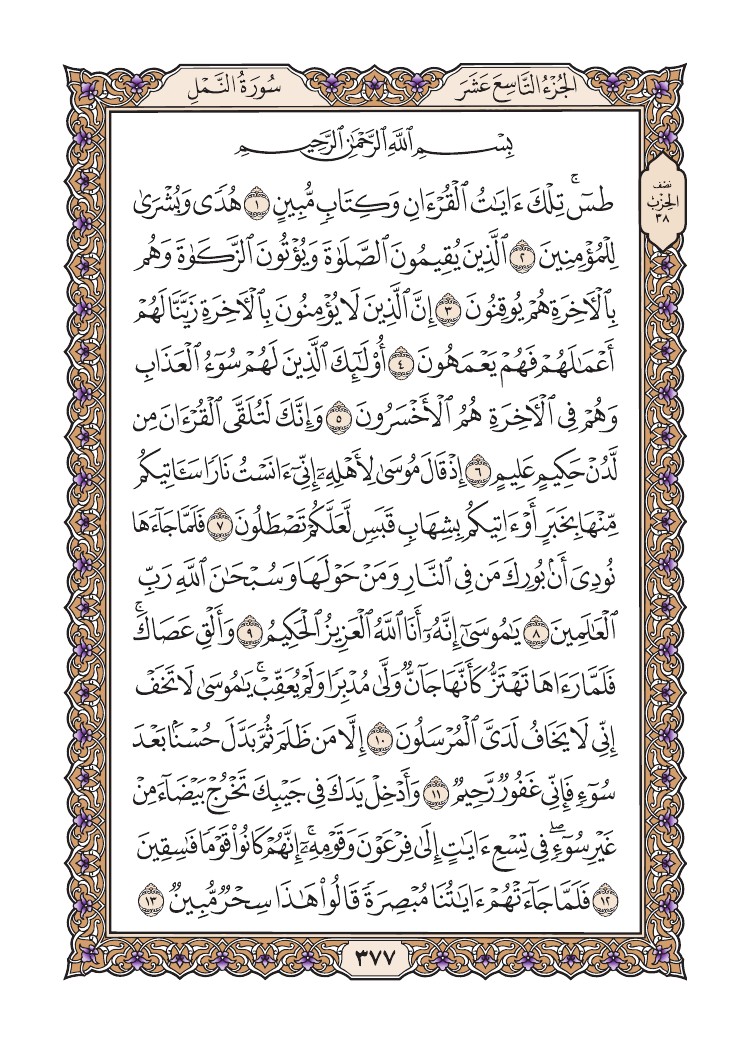 الجُزْءُ التَّاسِعَ عَشَرَ
سُورَةُ النَّمْلِ
نصف
الحزب
٣٨
بِسْمِ ٱللَّهِ ٱلرَّحْمَٰنِ ٱلرَّحِيمِ
طسٓۚ تِلْكَ ءَايَٰتُ ٱلْقُرْءَانِ وَكِتَابٍ مُّبِينٍ ١ هُدًى وَبُشْرَىٰ
لِلْمُؤْمِنِينَ ٢ ٱلَّذِينَ يُقِيمُونَ ٱلصَّلَوٰةَ وَيُؤْتُونَ ٱلزَّكَوٰةَ وَهُم
بِٱلْأَخِرَةِ هُمْ يُوقِنُونَ ٣ إِنَّ ٱلَّذِينَ لَا يُؤْمِنُونَ بِٱلْأَخِرَةِ زَيَّنَّا لَهُمْ
أَعْمَٰلَهُمْ فَهُمْ يَعْمَهُونَ ٤ أُوْلَٰٓئِكَ ٱلَّذِينَ لَهُمْ سُوٓءُ ٱلْعَذَابِ
وَهُمْ فِي ٱلْأَخِرَةِ هُمُ ٱلْأَخْسَرُونَ ٥ وَإِنَّكَ لَتُلَقَّى ٱلْقُرْءَانَ مِن
لَّدُنْ حَكِيمٍ عَلِيمٍ ٦ إِذْ قَالَ مُوسَىٰ لِأَهْلِهِۦٓ إِنِّيٓ ءَانَسْتُ نَارًا سَـَٔاتِيكُم
مِّنْهَا بِخَبَرٍ أَوْ ءَاتِيكُم بِشِهَابٍ قَبَسٍ لَّعَلَّكُمْ تَصْطَلُونَ ٧ فَلَمَّا جَآءَهَا
نُودِيَ أَنۢ بُورِكَ مَن فِي ٱلنَّارِ وَمَنْ حَوْلَهَا وَسُبْحَٰنَ ٱللَّهِ رَبِّ
ٱلْعَٰلَمِينَ ٨ يَٰمُوسَىٰٓ إِنَّهُۥٓ أَنَا ٱللَّهُ ٱلْعَزِيزُ ٱلْحَكِيمُ ٩ وَأَلْقِ عَصَاكَۚ
فَلَمَّا رَءَاهَا تَهْتَزُّ كَأَنَّهَا جَآنٌّ وَلَّىٰ مُدْبِرًا وَلَمْ يُعَقِّبْۚ يَٰمُوسَىٰ لَا تَخَفْ
إِنِّي لَا يَخَافُ لَدَيَّ ٱلْمُرْسَلُونَ ١٠ إِلَّا مَن ظَلَمَ ثُمَّ بَدَّلَ حُسْنًۢا بَعْدَ
سُوٓءٍ فَإِنِّي غَفُورٌ رَّحِيمٌ ١١ وَأَدْخِلْ يَدَكَ فِي جَيْبِكَ تَخْرُجْ بَيْضَآءَ مِنْ
غَيْرِ سُوٓءٍۖ فِي تِسْعِ ءَايَٰتٍ إِلَىٰ فِرْعَوْنَ وَقَوْمِهِۦٓۚ إِنَّهُمْ كَانُوا۟ قَوْمًا فَٰسِقِينَ
١٢ فَلَمَّا جَآءَتْهُمْ ءَايَٰتُنَا مُبْصِرَةً قَالُوا۟ هَٰذَا سِحْرٌ مُّبِينٌ ١٣
٣٧٧